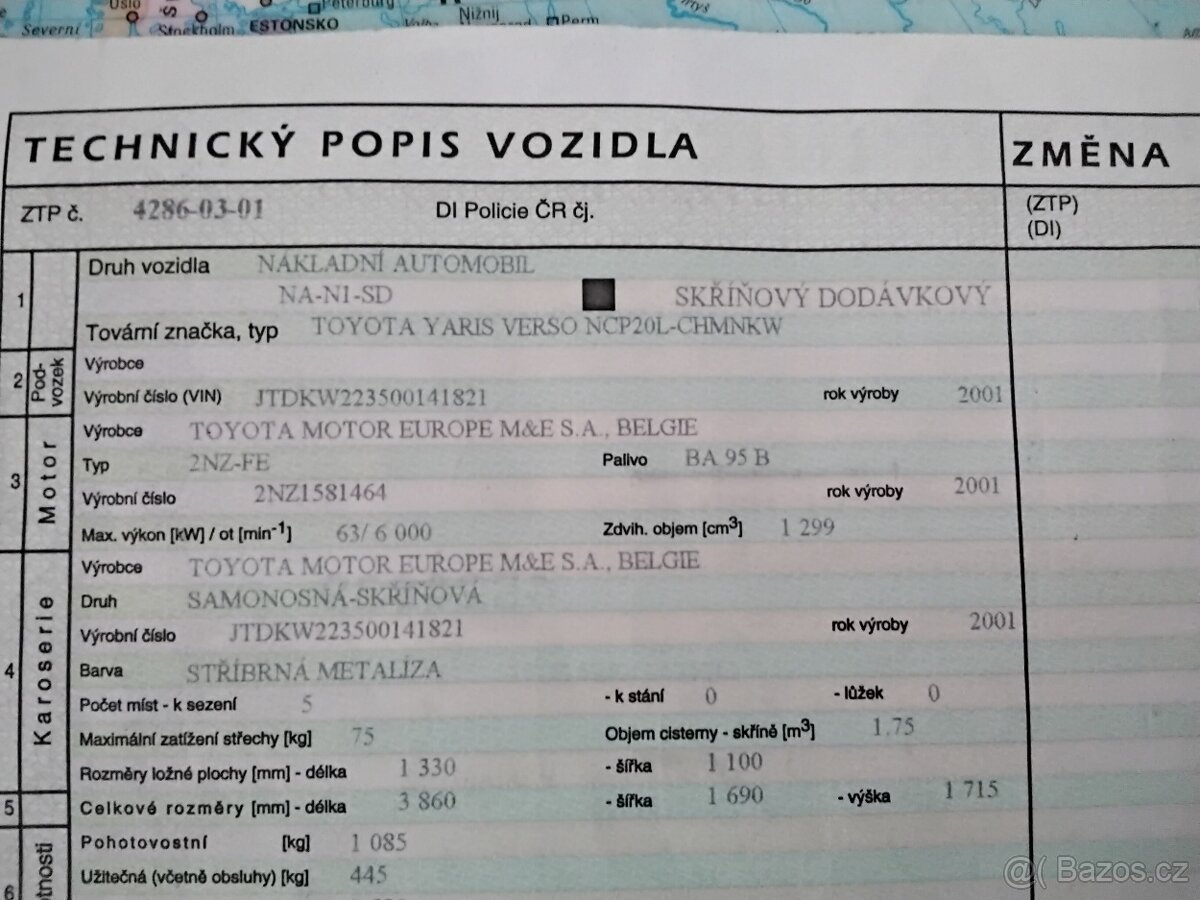 Oslo
Severní
Stockholm
ESTONSKO
Nižnij
Perm
TECHNICKÝ POPIS VOZIDLA
ZMĚNA
ZTP č. 4286-03-01 DI Policie ČR čj.
(ZTP)
(DI)
1 Druh vozidla NÁKLADNÍ AUTOMOBIL
NA-N1-SD SKŘÍŇOVÝ DODÁVKOVÝ
Tovární značka, typ TOYOTA YARIS VERSO NCP20L-CHMNKW
2 Pod-
vozek
Výrobce
Výrobní číslo (VIN) JTDKW223500141821 rok výroby 2001
3 Motor
Výrobce TOYOTA MOTOR EUROPE M&E S.A., BELGIE
Typ 2NZ-FE Palivo BA 95 B
Výrobní číslo 2NZ1581464 rok výroby 2001
Max. výkon [kW] / ot [min-1] 63/ 6 000 Zdvih. objem [cm3] 1 299
4 Karoserie
Výrobce TOYOTA MOTOR EUROPE M&E S.A., BELGIE
Druh SAMONOSNÁ-SKŘÍŇOVÁ
Výrobní číslo JTDKW223500141821 rok výroby 2001
Barva STŘÍBRNÁ METALÍZA
Počet míst - k sezení 5 - k stání 0 - lůžek 0
Maximální zatížení střechy [kg] 75 Objem cisterny - skříně [m3] 1.75
Rozměry ložné plochy [mm] - délka 1 330 - šířka 1 100
5 Celkové rozměry [mm] - délka 3 860 - šířka 1 690 - výška 1 715
6 Pohotovostní [kg] 1 085
Užitečná (včetně obsluhy) [kg] 445
@( Bazos.cz